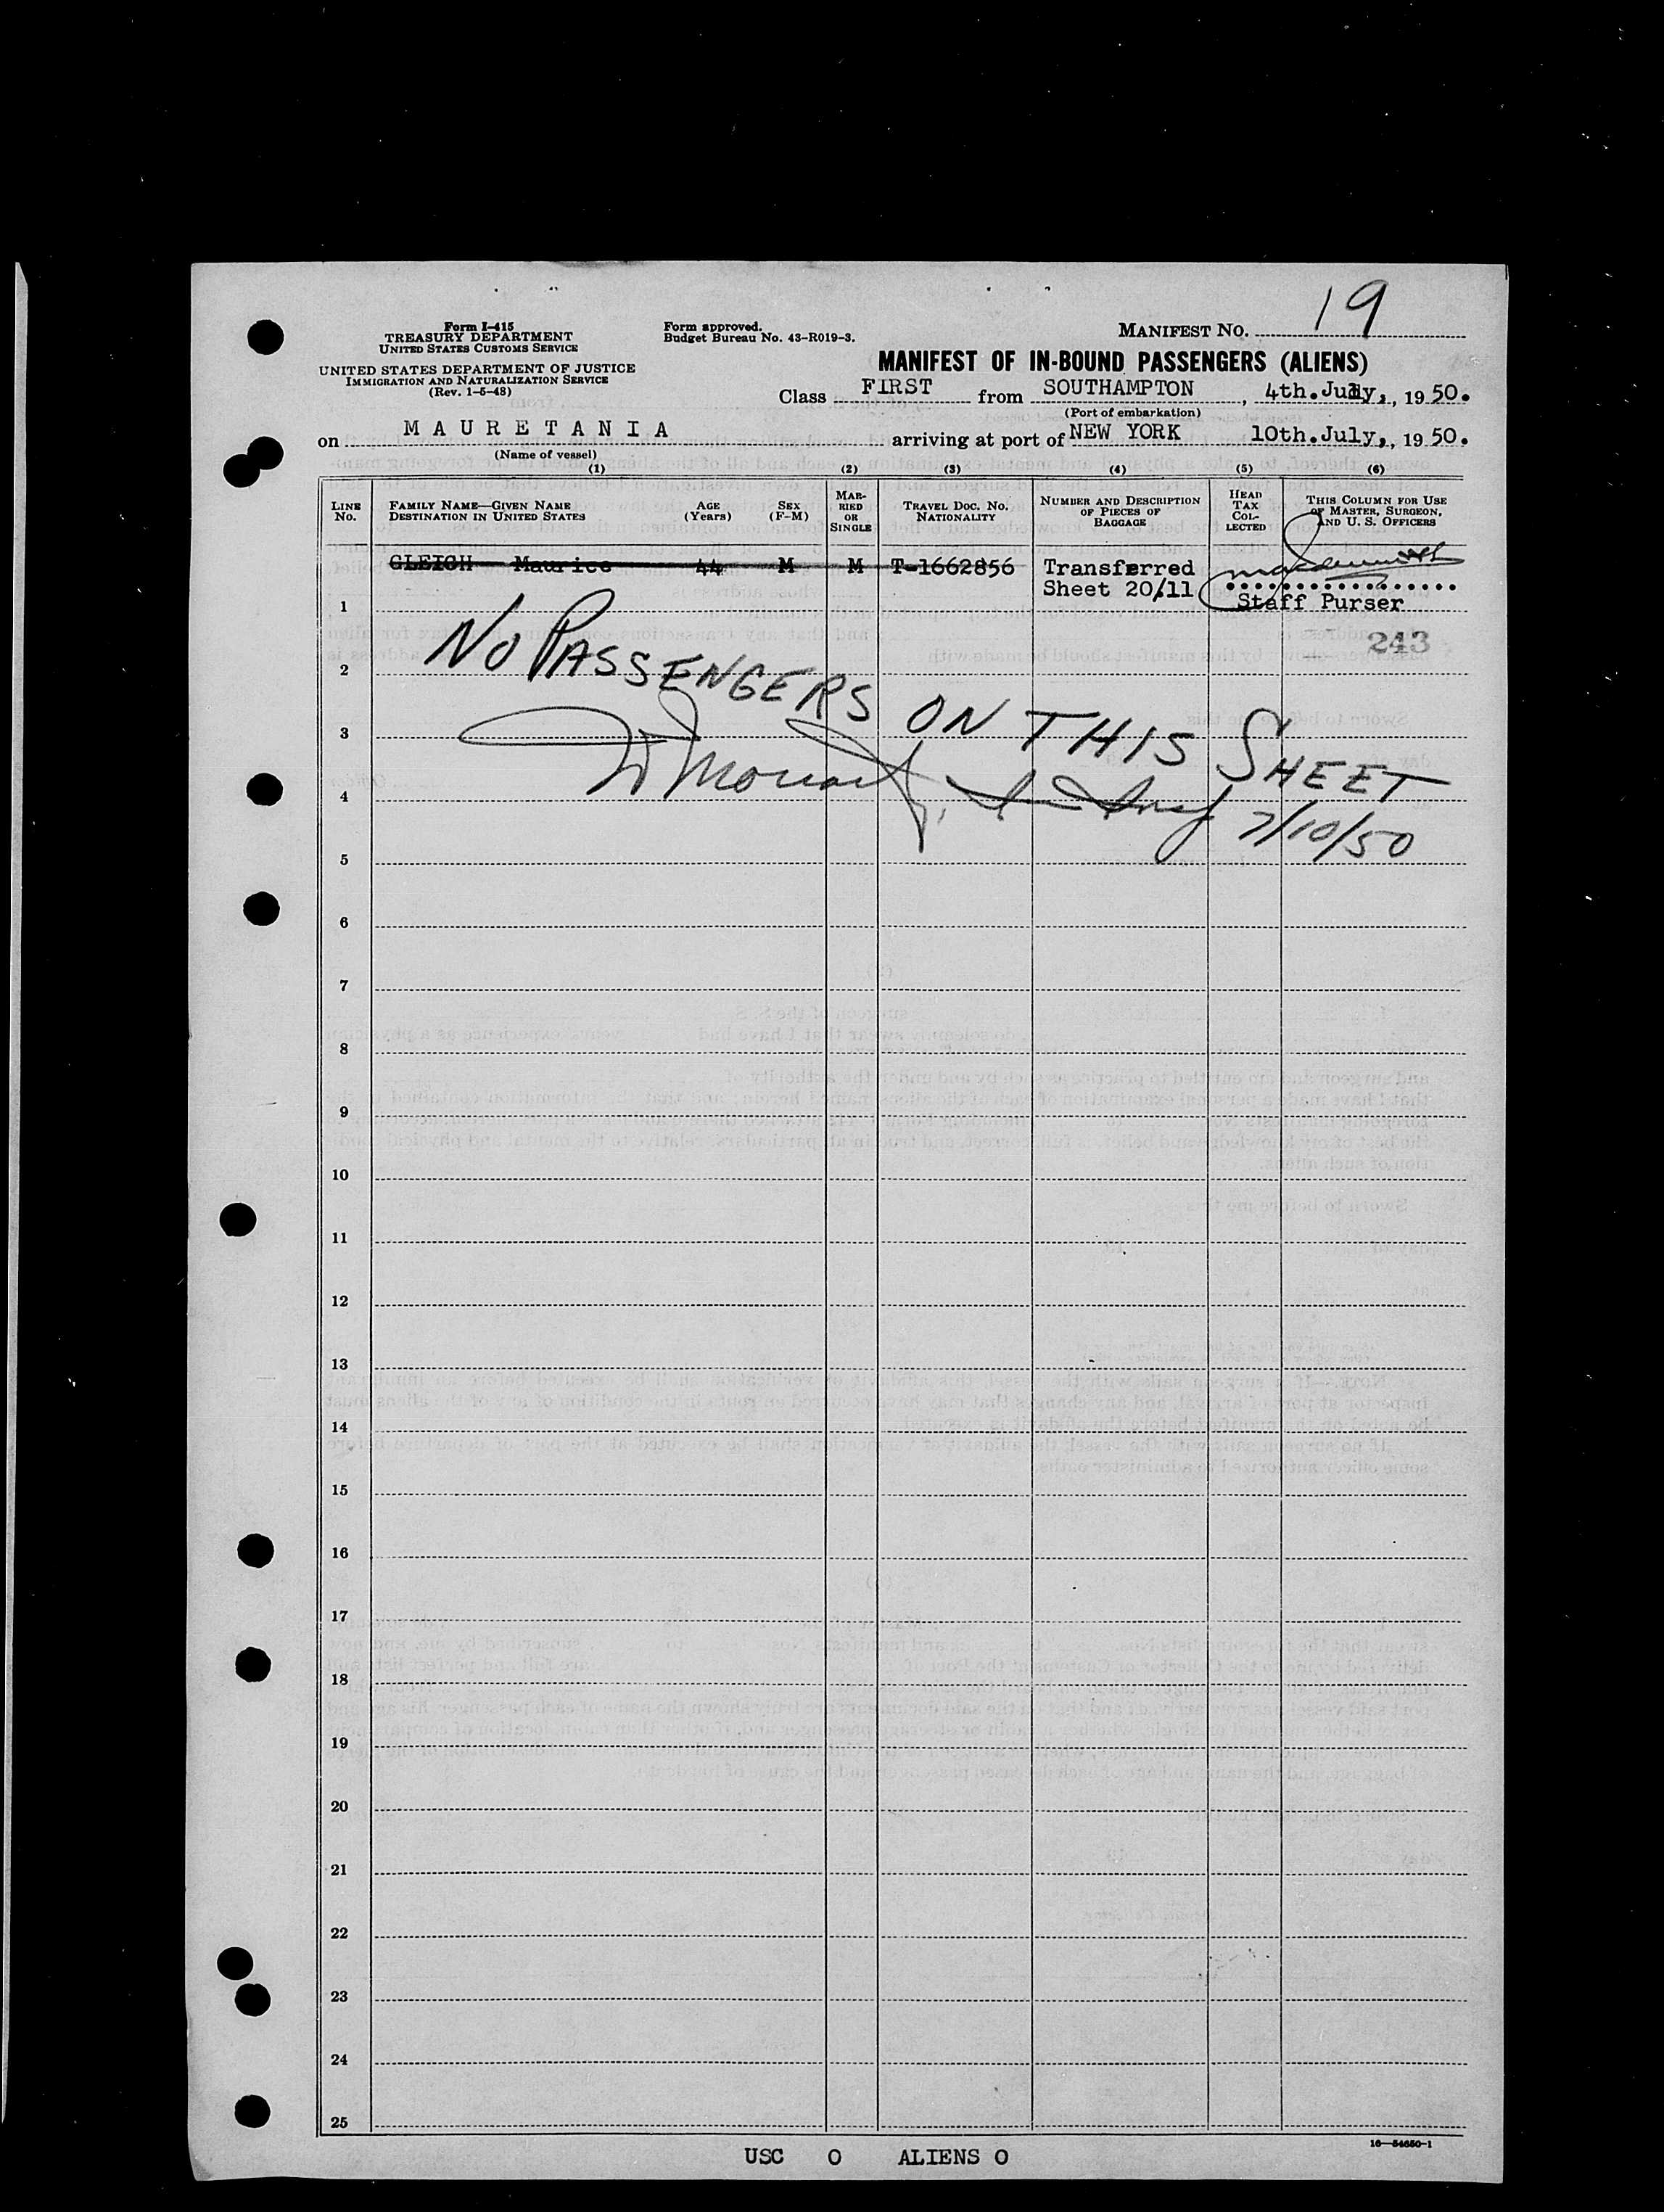 19
Form I-415
TREASURY DEPARTMENT
UNITED STATES CUSTOMS SERVICE
UNITED STATES DEPARTMENT OF JUSTICE
IMMIGRATION AND NATURALIZATION SERVICE
(Rev. 1-5-48)
Form approved.
Budget Bureau No. 43-R019-3.
MANIFEST NO.
MANIFEST OF IN-BOUND PASSENGERS (ALIENS)
Class FIRST from SOUTHAMPTON, 4th. July, 1950.
(Port of embarkation)
on MAURETANIA arriving at port of NEW YORK 10th. July, 1950.
(Name of vessel)
(1) (2) (3) (4) (5) (6)
LINE No. FAMILY NAME—GIVEN NAME DESTINATION IN UNITED STATES AGE (Years) SEX (F-M) MARRIED OR SINGLE TRAVEL DOC. NO. NATIONALITY NUMBER AND DESCRIPTION OF PIECES OF BAGGAGE HEAD TAX COLLECTED THIS COLUMN FOR USE OF MASTER, SURGEON, AND U. S. OFFICERS
GLEICH Maurice 44 M M T-1662856 Transferred
Sheet 20/11
Staff Purser
1
243
2
NO PASSENGERS ON THIS SHEET
3
4
7/10/50
5
6
7
8
9
10
11
12
13
14
15
16
17
18
19
20
21
22
23
24
25
16—54650-1
USC 0 ALIENS 0